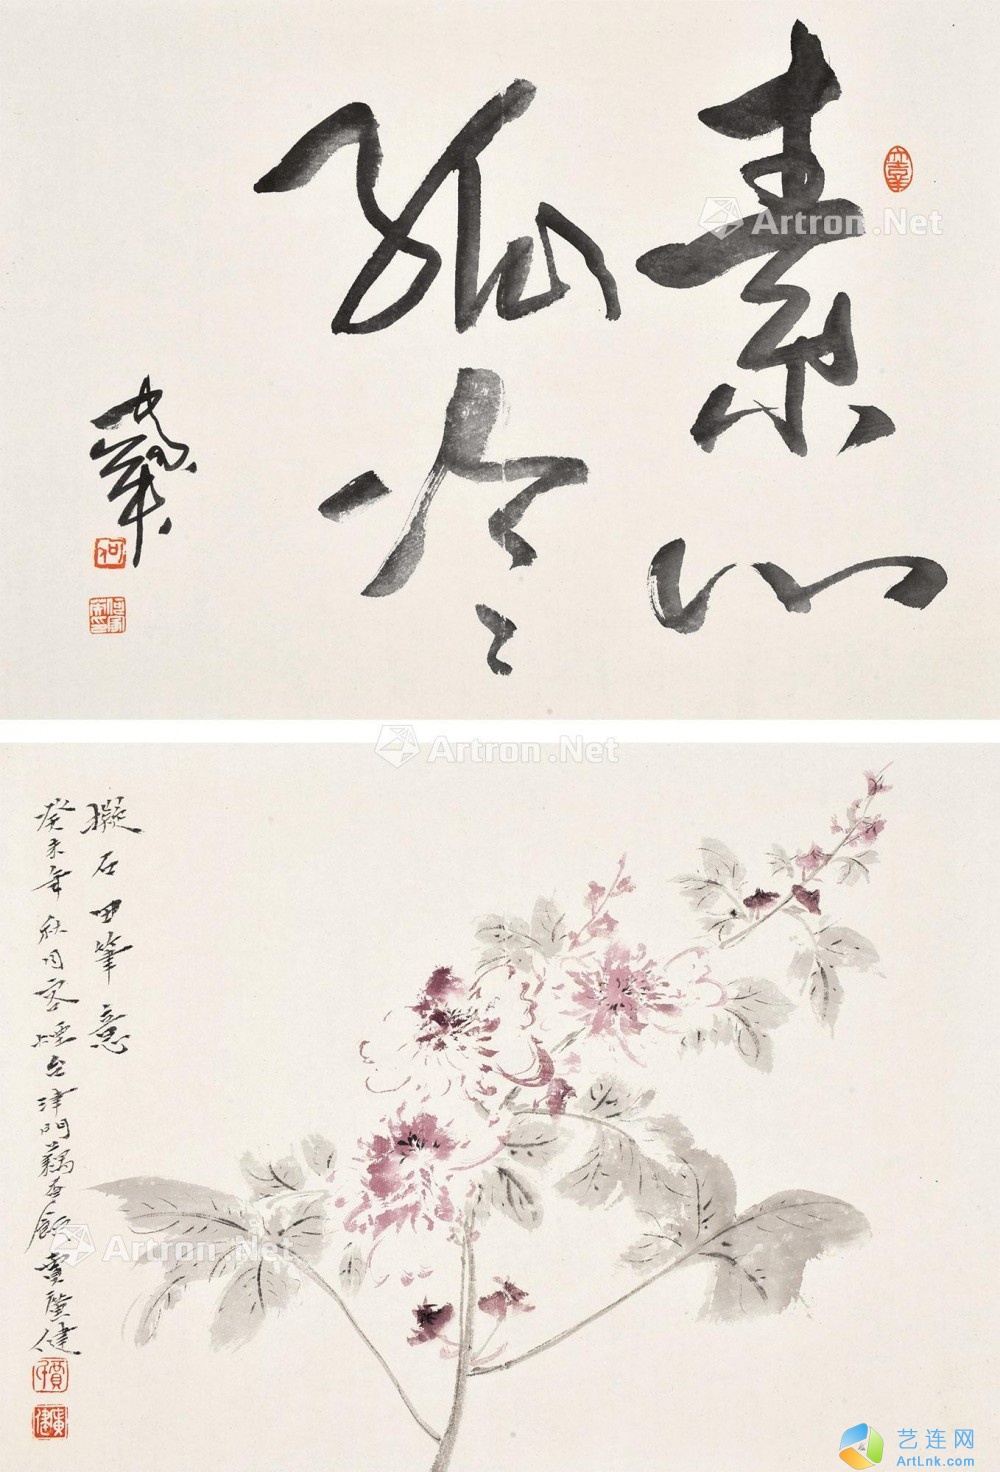 素心
孤冷
家英
何
Artron.Net
Artron.Net
擬石田筆意
癸未年秋月客煙台津門賈廣健
賈
廣健
Artron.Net
艺连网
ArtLnk.com